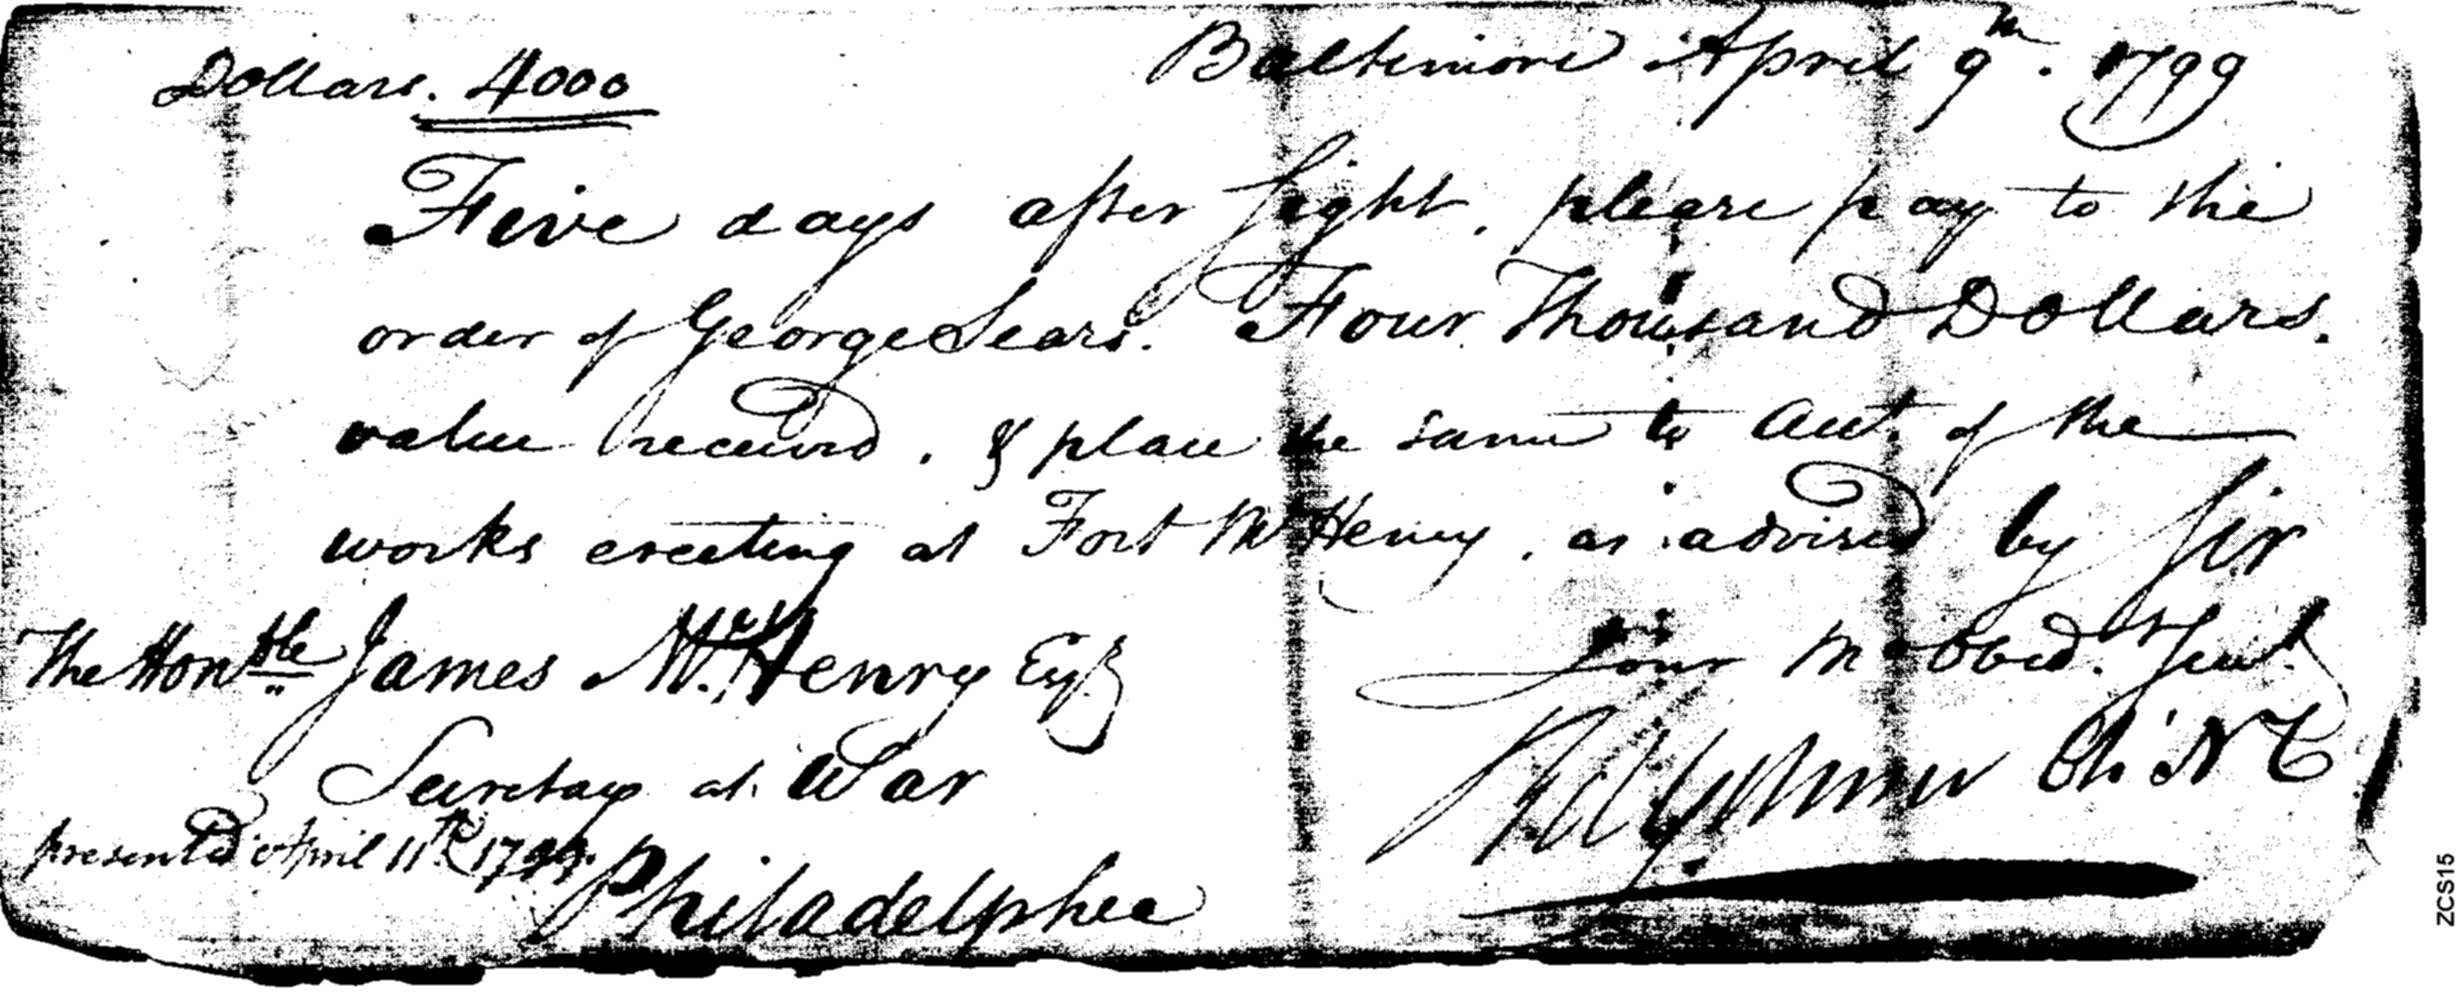 Dollars. 4000
Baltimore April 9th. 1799
Five days after sight. please pay to the
order of George Sears. Four Thousand Dollars.
value received. & place the same to acct. of the
works erecting at Fort McHenry. as advised by Sir
Your M obbed. Servt.
The Honble James McHenry Esqr
Secretary at War
presented April 11th 1799.
Philadelphia
ZCS15